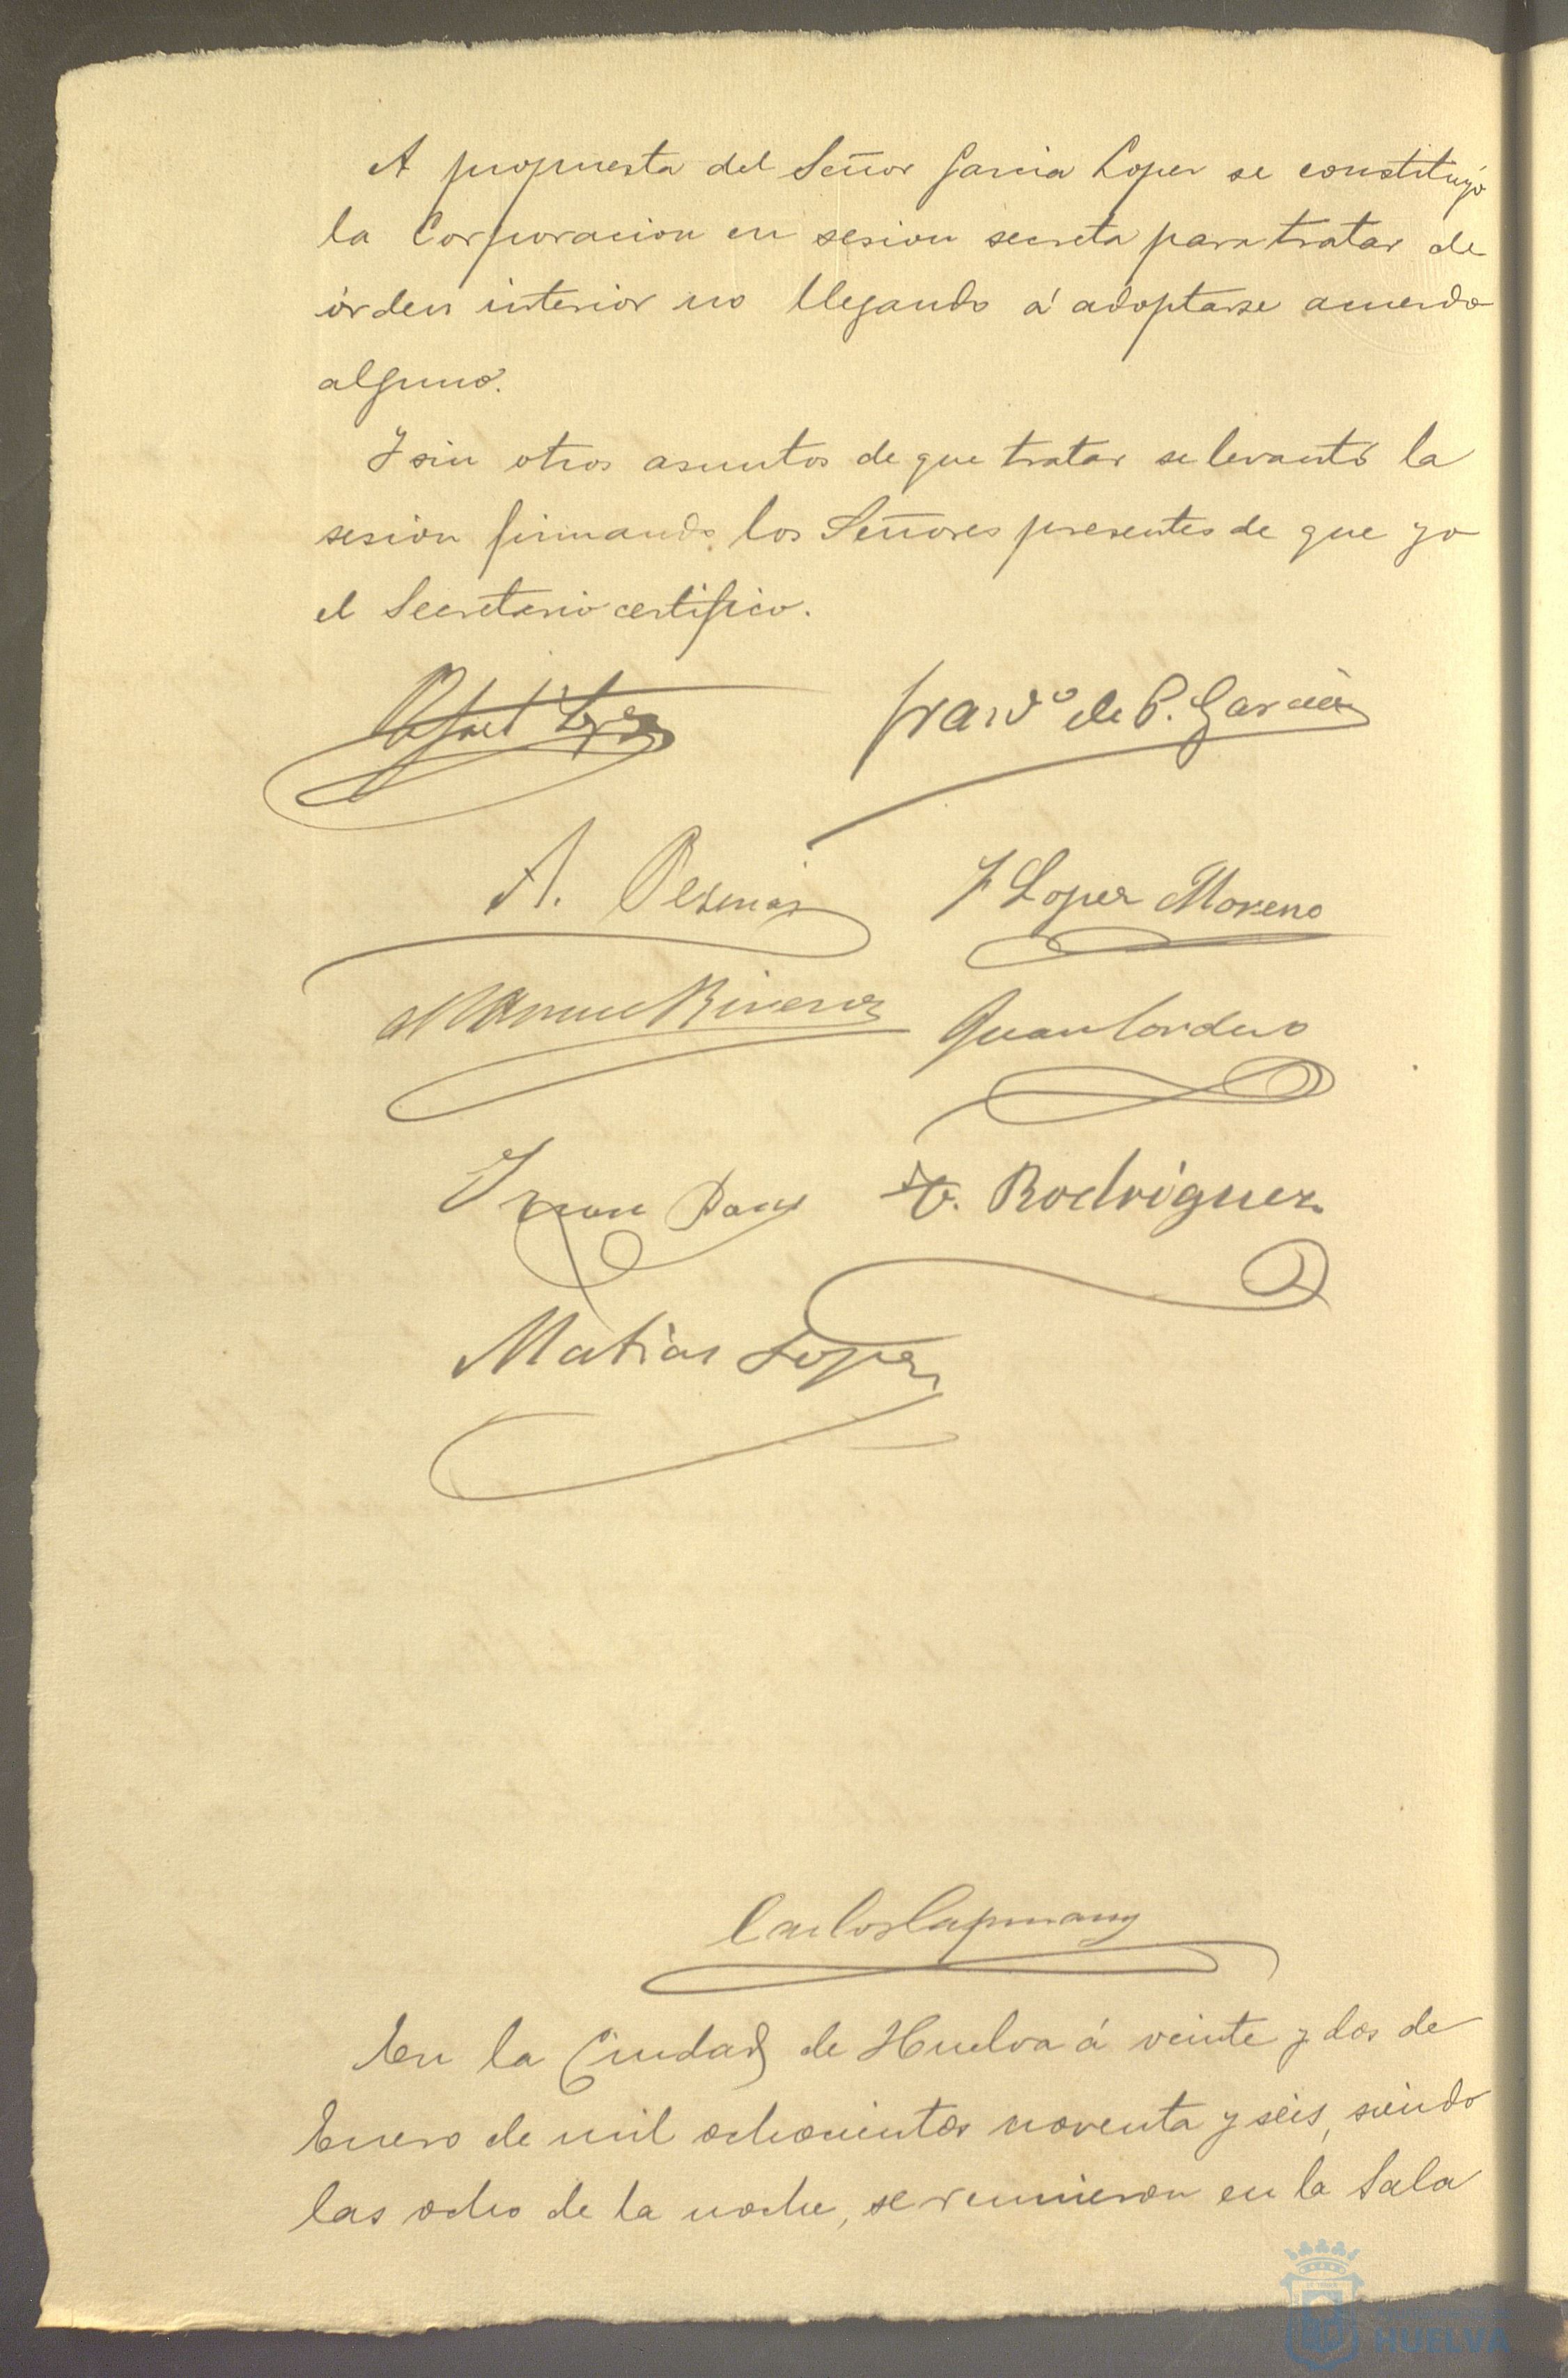 A propuesta del Señor Garcia Lopez se constituyó
la Corporacion en sesion secreta para tratar de
órden interior no llegando á adoptarse acuerdo
alguno.
Y sin otros asuntos de que tratar se levantó la
sesion firmando los Señores presentes de que yo
el Secretario certifico.
Rafael Lopez
Franco de P. Garcia
A.
J Lopez Moreno
Manuel Rivera
Juan Cordero
Juan
V. Rodriguez
Matias Lopez
Carlos Capmany
En la Ciudad de Huelva á veinte y dos de
Enero de mil ochocientos noventa y seis, siendo
las ocho de la noche, se reunieron en la Sala
HUELVA